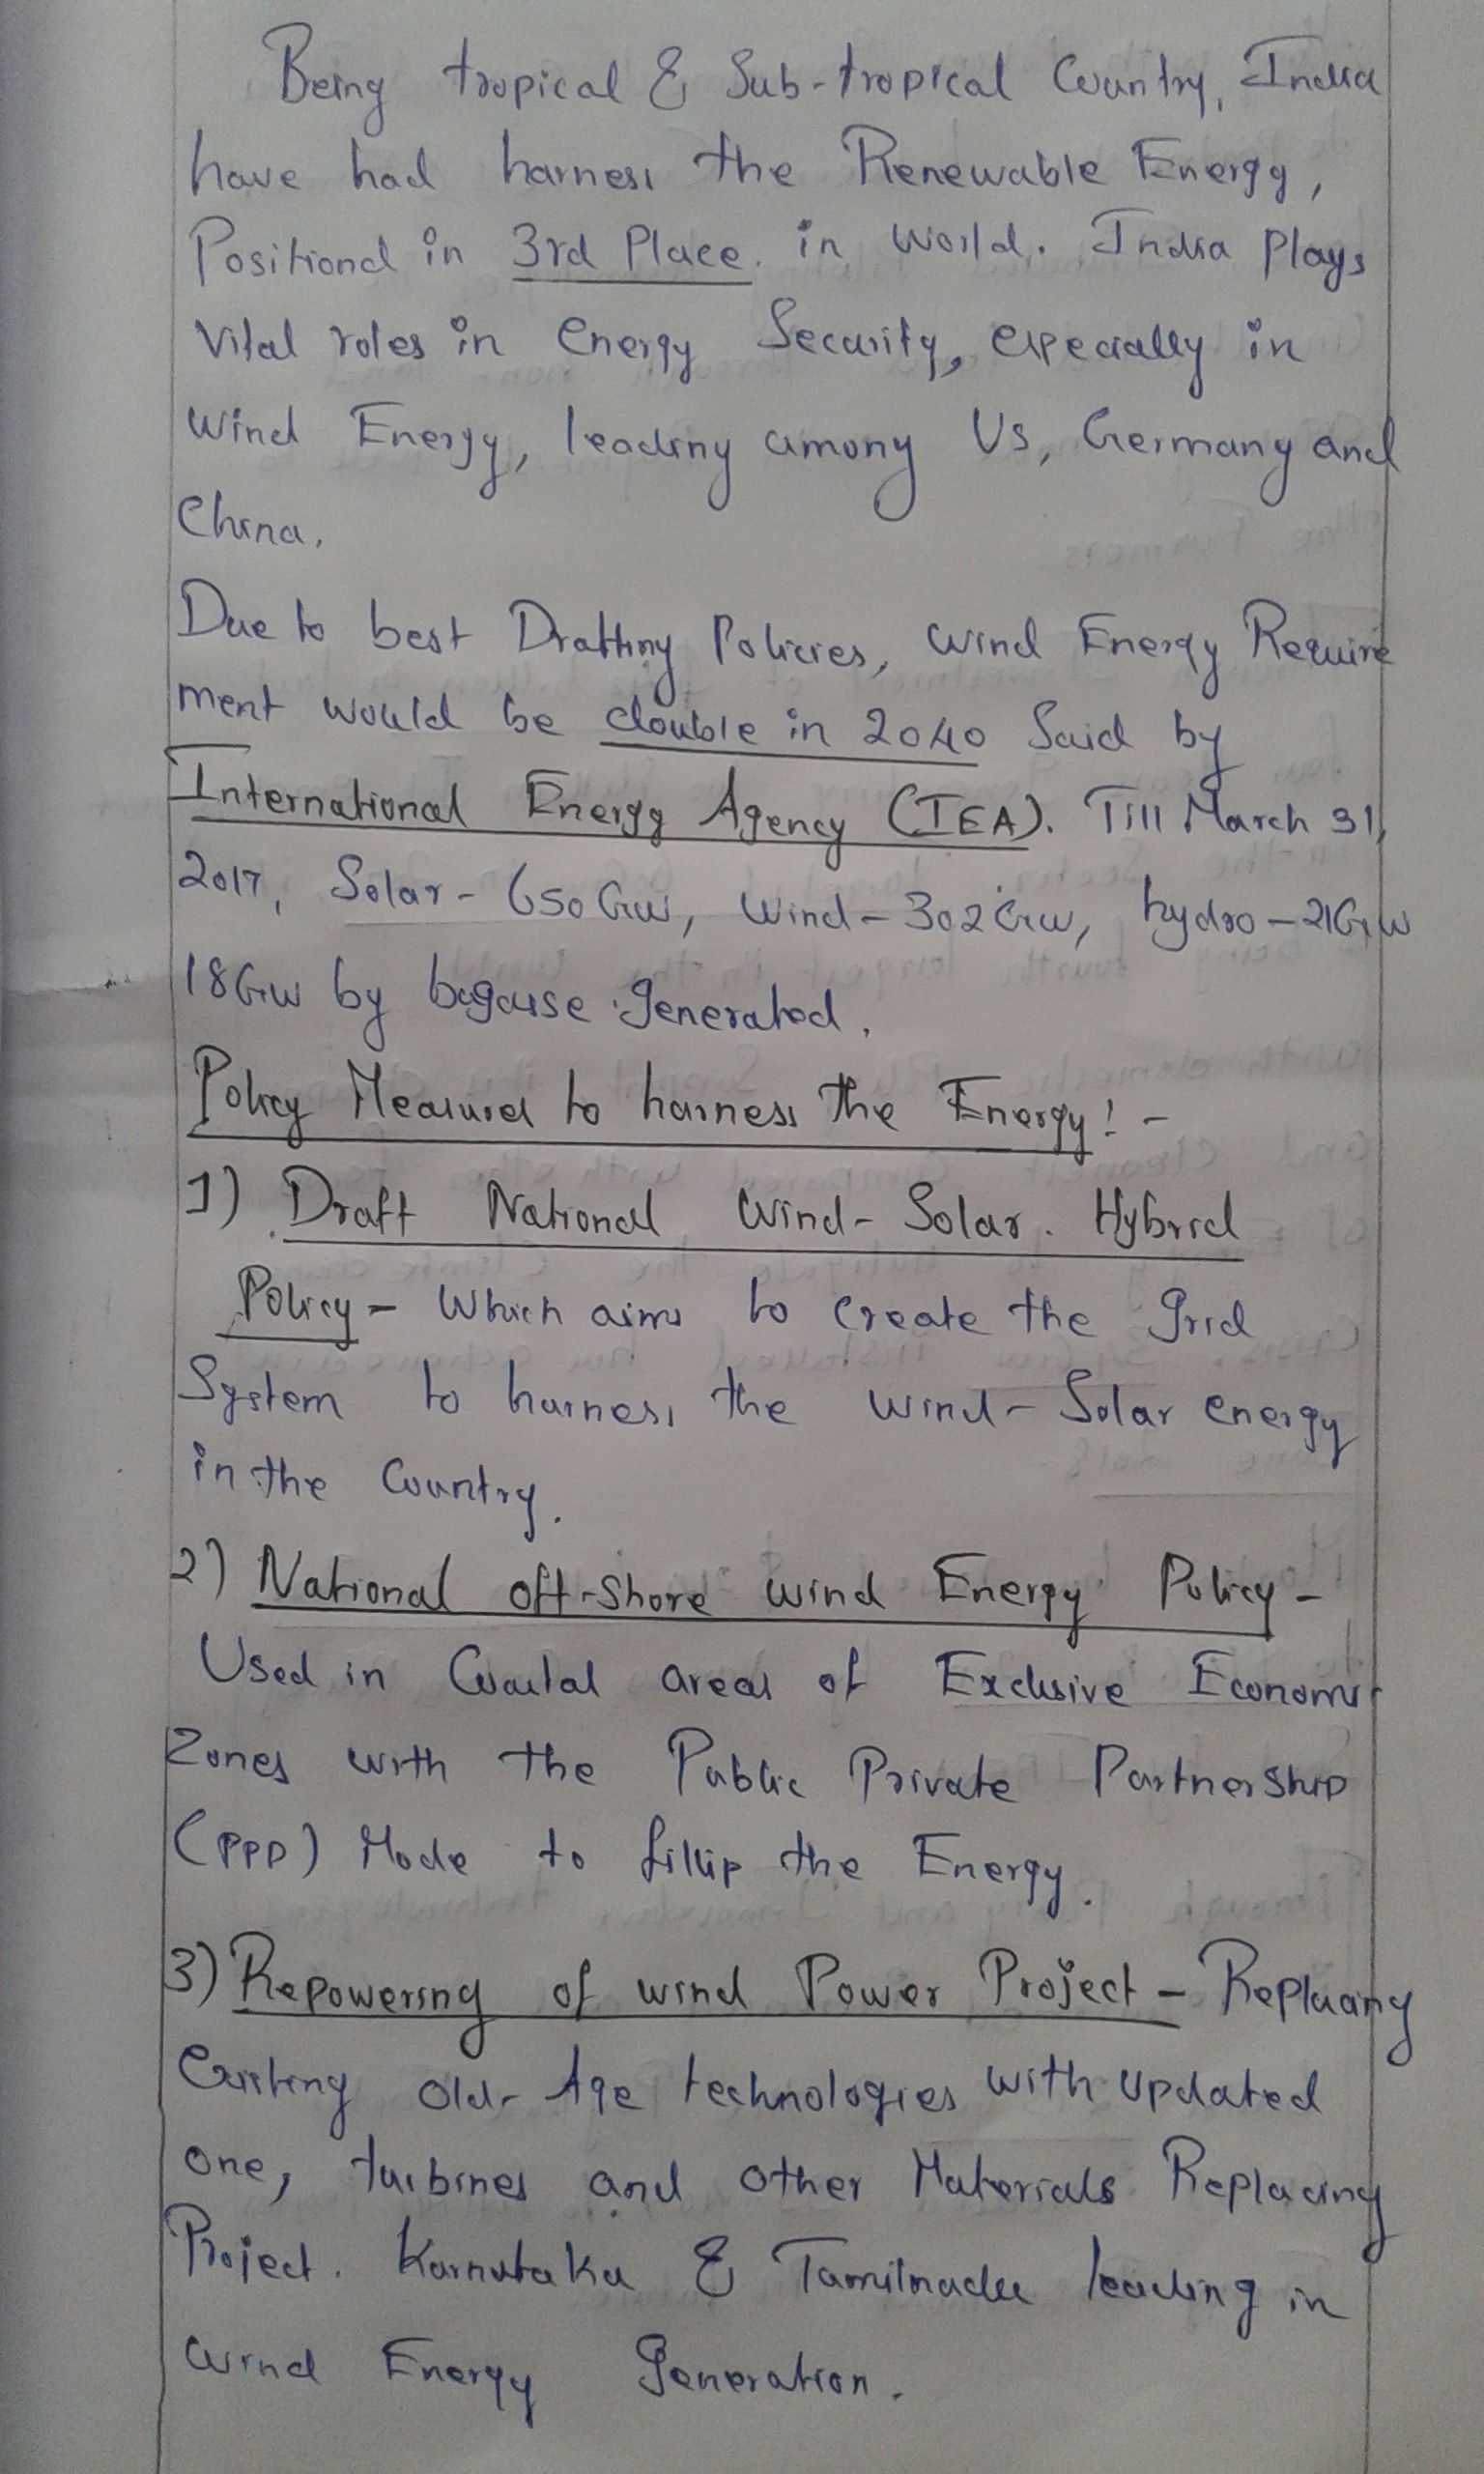 Being tropical & Sub-tropical Country, India
have had harness the Renewable Energy,
Positiond in 3rd Place. in World. India Plays
Vital roles in Energy Security, especially in
Wind Energy, leading among Us, Germany and
China.
Due to best Drafting Policies, Wind Energy Require
ment would be double in 2040 Said by
International Energy Agency (IEA). Till March 31,
2017, Solar - 650 GW, Wind - 302 GW, hydro - 21GW
18GW by bagasse generated.
Policy Measures to harness the Energy! -
1) Draft National Wind - Solar. Hybrid
Policy - Which aims to Create the Grid
System to harness the Wind - Solar energy
in the Country.
2) National Off-Shore Wind Energy Policy -
Used in Coastal areas of Exclusive Economic
Zones with the Public Private Partnership
(PPP) Mode to fillip the Energy.
3) Repowering of Wind Power Project - Replacing
Existing Old-Age technologies with updated
one, turbines and other Materials Replacing
Project. Karnataka & Tamilnadu leading in
Wind Energy Generation.